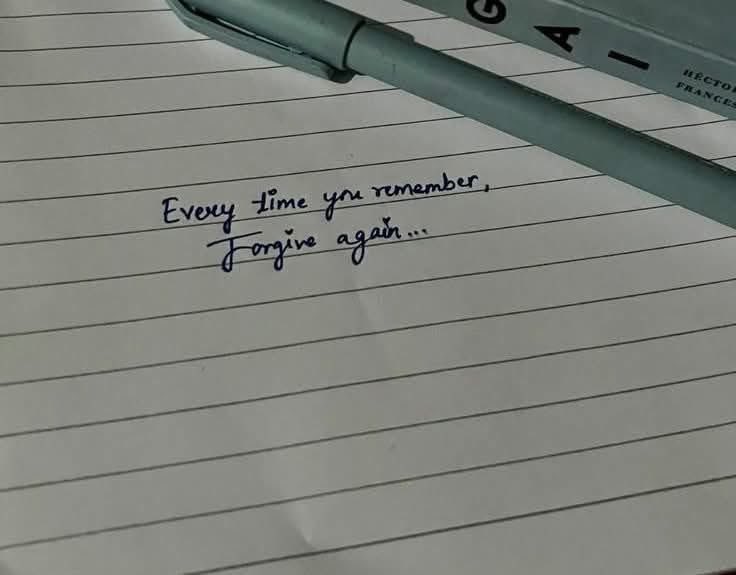 GAI
HÉCTO
FRANCES
Every time you remember,
Forgive again...